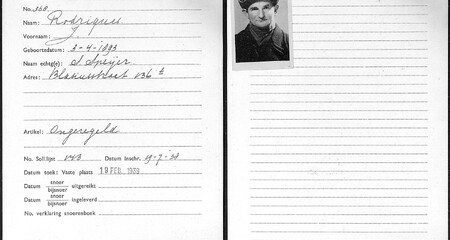 No. 368
Naam: Rodrigues
Voornaam: J.
Geboortedatum: 3-4-1893
Naam echtg(e): S Speijer
Adres:
Artikel: Ongeregeld
No. Soll.lijst Datum inschr. 19-7-
Datum toek: Vaste plaats 19 FEB.
Datum snoer bijsnoer uitgereikt
Datum snoer bijsnoer ingeleverd
No. verklaring snoerenboek